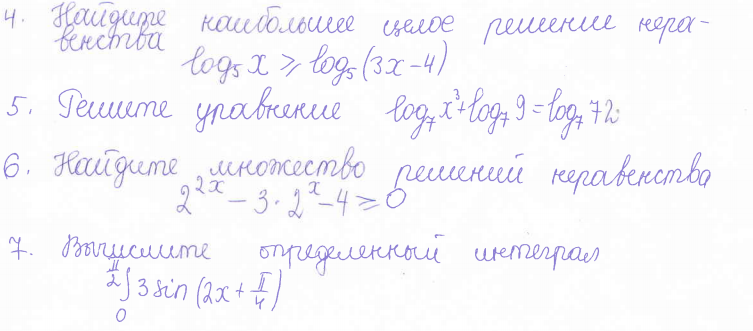 4. Найдите наибольшее целое решение нера-
венства
log₅ x ⩾ log₅ (3x – 4)
5. Решите уравнение log₇ x³ + log₇ 9 = log₇ 72
6. Найдите множество решений неравенства
2²ˣ – 3 · 2ˣ – 4 ⩾ 0
7. Вычислите определенный интеграл
π/2 ∫ 0 3 sin (2x + π/4)